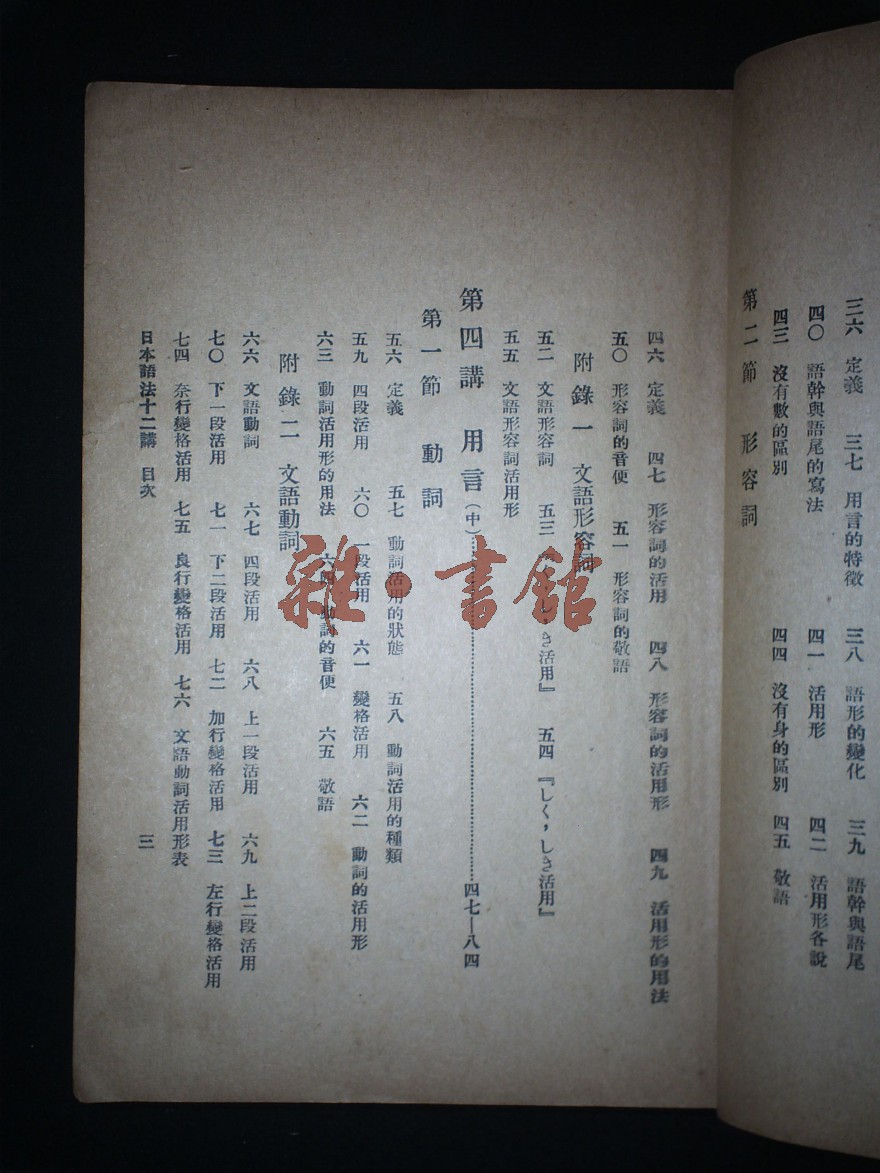 三六 定義 三七 用言的特徵 三八 語形的變化 三九 語幹與語尾
四〇 語幹與語尾的寫法 四一 活用形 四二 活用形各說
四三 沒有數的區別 四四 沒有身的區別 四五 敬語
第二節 形容詞
四六 定義 四七 形容詞的活用 四八 形容詞的活用形 四九 活用形的用法
五〇 形容詞的音便 五一 形容詞的敬語
附錄一 文語形容詞
五二 文語形容詞 五三 き活用』 五四 『しく,しき活用』
五五 文語形容詞活用形
第四講 用言(中)…………四七—八四
第一節 動詞
五六 定義 五七 動詞活用的狀態 五八 動詞活用的種類
五九 四段活用 六〇 一段活用 六一 變格活用 六二 動詞的活用形
六三 動詞活用形的用法 六四 動詞的音便 六五 敬語
附錄二 文語動詞
六六 文語動詞 六七 四段活用 六八 上一段活用 六九 上二段活用
七〇 下一段活用 七一 下二段活用 七二 加行變格活用 七三 左行變格活用
七四 奈行變格活用 七五 良行變格活用 七六 文語動詞活用形表
日本語法十二講 目次 三
雜·書館